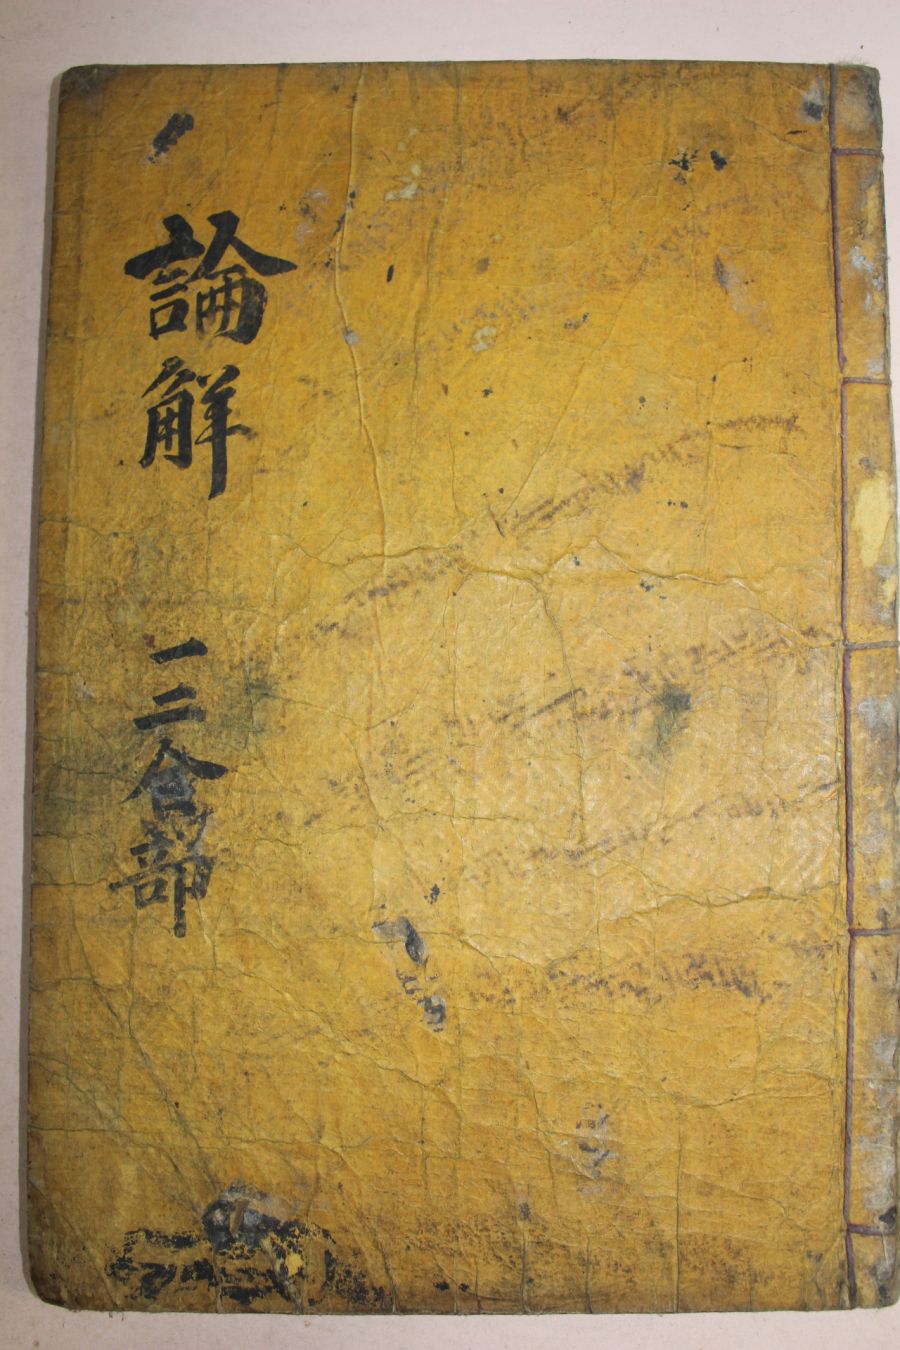 論解
一二合部